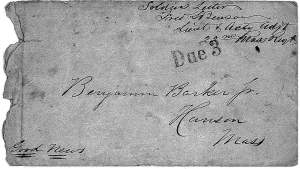 Soldier Letter
Lieut & Actg Adjt
22nd Mass Regt
Due 3
Benjamin Barker Jr.
Hanson
Mass
Good News